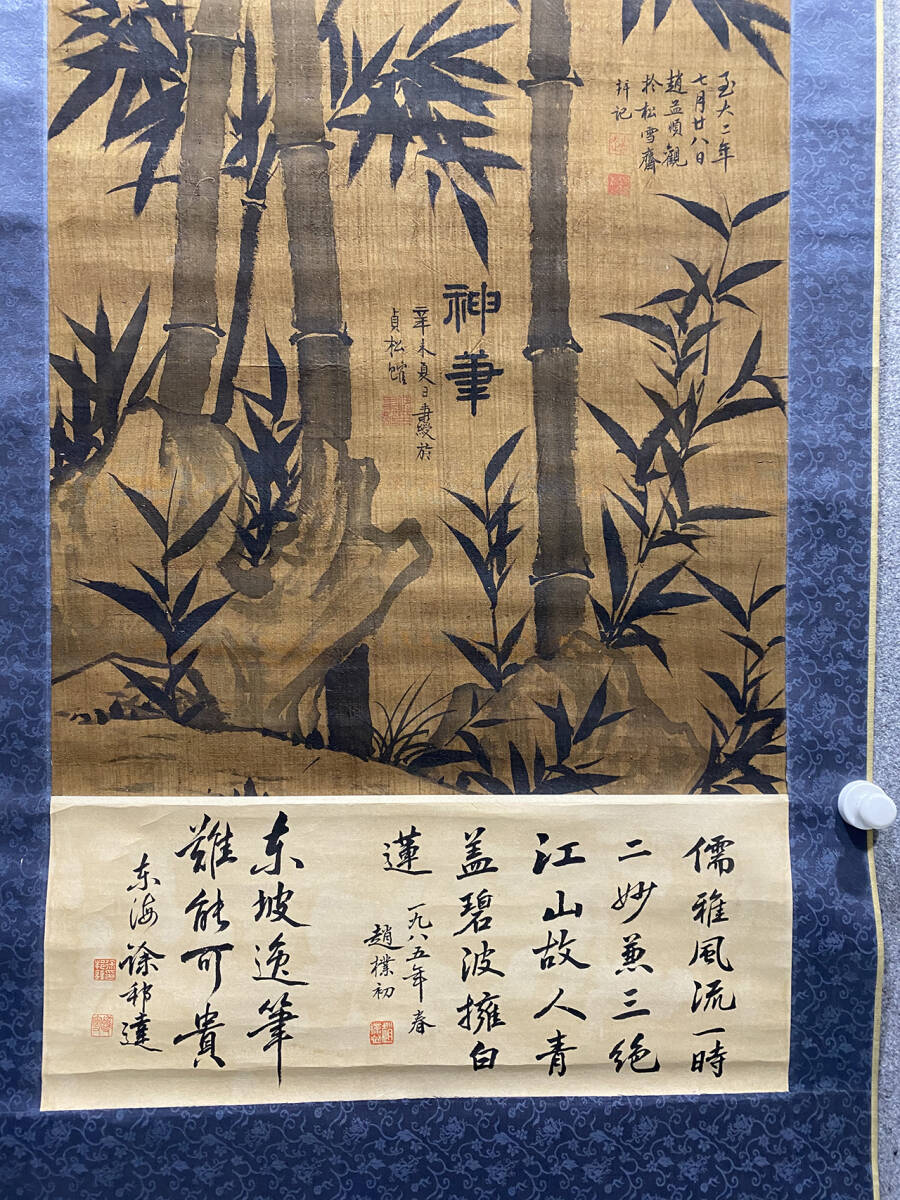 至大二年
七月廿八日
趙孟頫觀
於松雪齋
并記
神筆
辛未夏日書於
貞松
儒雅風流一時
二妙兼三绝
江山故人青
盖碧波擁白
蓮
一九八五年春
趙樸初
东坡逸筆
難能可貴
东海徐邦達